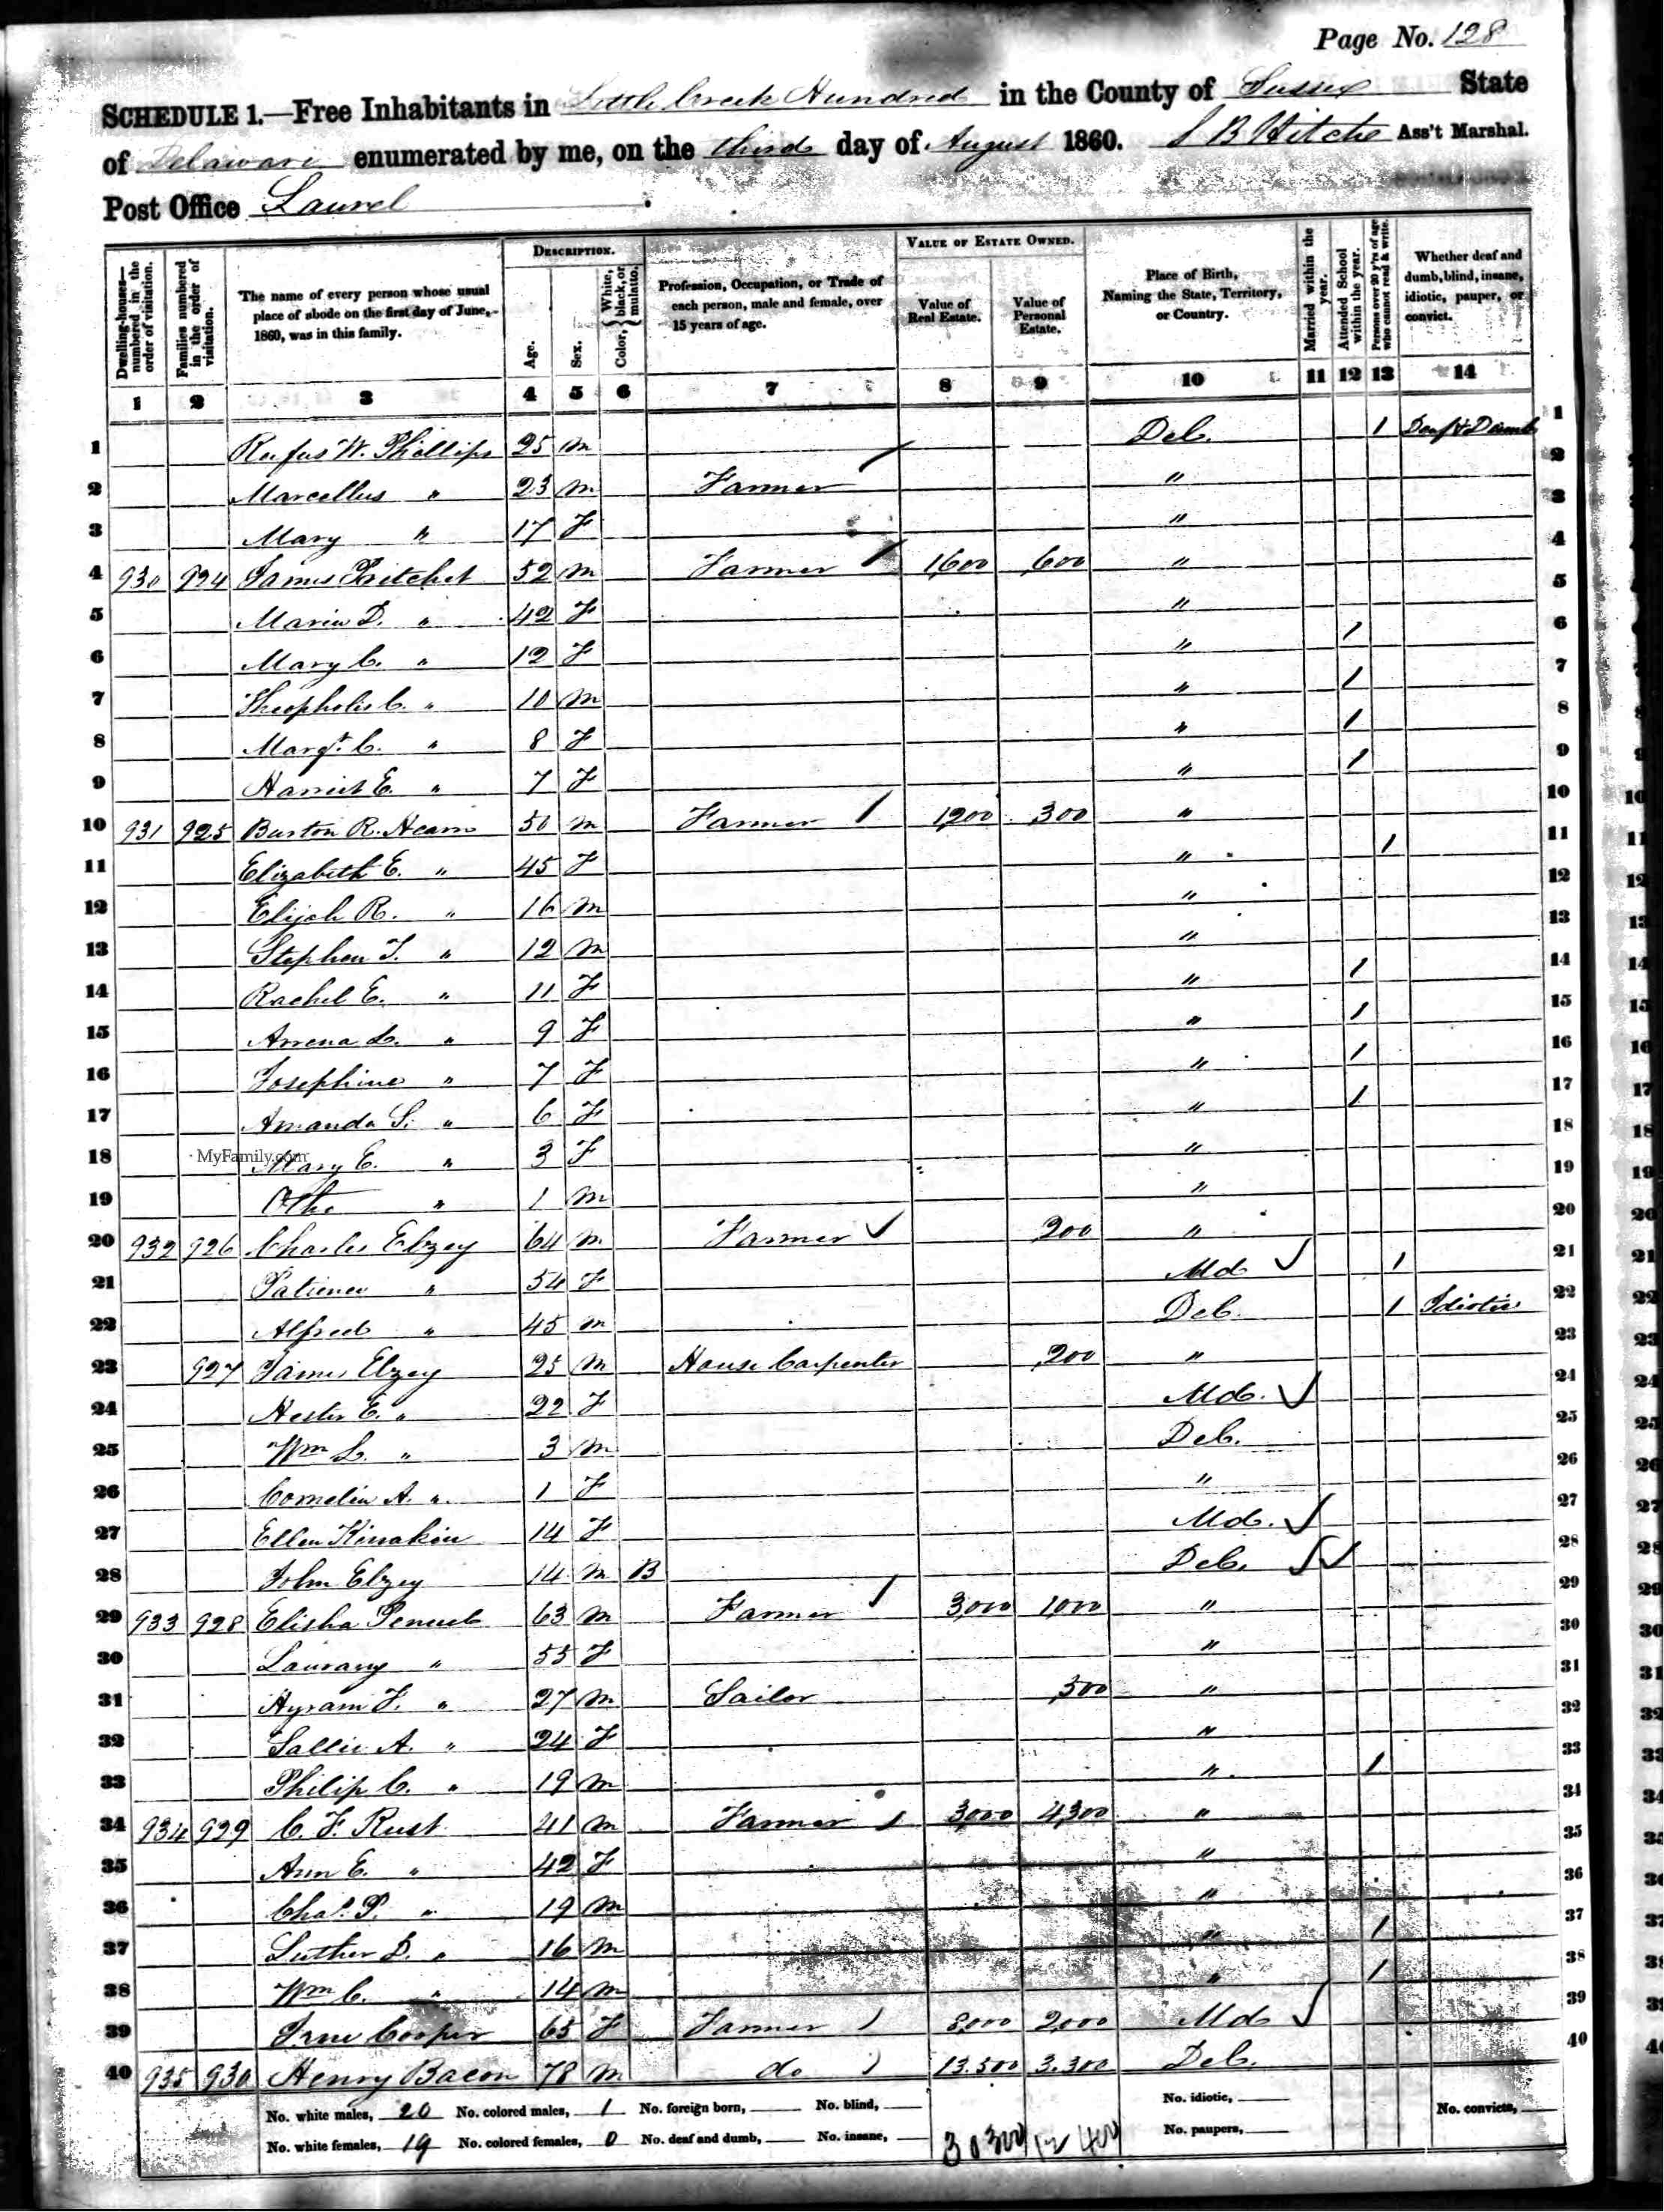 Page No. 128
SCHEDULE 1.—Free Inhabitants in Little Creek Hundred in the County of Sussex State
of Delaware enumerated by me, on the third day of August 1860. S B Hitche Ass't Marshal.
Post Office Laurel
Dwelling-houses—numbered in the order of visitation.
Families numbered in the order of visitation.
The name of every person whose usual place of abode on the first day of June, 1860, was in this family.
DESCRIPTION.
Age.
Sex.
Color, { White, black, or mulatto.
Profession, Occupation, or Trade of each person, male and female, over 15 years of age.
VALUE OF ESTATE OWNED.
Value of Real Estate.
Value of Personal Estate.
Place of Birth, Naming the State, Territory, or Country.
Married within the year.
Attended School within the year.
Persons over 20 y'rs of age who cannot read & write.
Whether deaf and dumb, blind, insane, idiotic, pauper, or convict.
1 2 3 4 5 6 7 8 9 10 11 12 13 14
1 Rufus W. Phillips 25 m Del. 1 Deaf & Dumb 1
2 Marcellus " 23 m Farmer " 2
3 Mary " 17 F " 3
4 930 924 James Pritchet 52 m Farmer 1,600 600 " 4
5 Maria D. " 42 F " 5
6 Mary C. " 12 F " 1 6
7 Theopholis C. " 10 m " 1 7
8 Margt. C. " 8 F " 1 8
9 Harriet E. " 7 F " 1 9
10 931 925 Burton R. Hearn 50 m Farmer 1,200 300 " 10
11 Elizabeth E. " 45 F " 1 11
12 Elijah R. " 16 m " 12
13 Stephen T. " 12 m " 13
14 Rachel E. " 11 F " 1 14
15 Arrena L. " 9 F " 1 15
16 Josephine " 7 F " 1 16
17 Amanda S. " 6 F " 1 17
18 Mary E. " 3 F " 18
MyFamily.com
19 Otho " 1 m " 19
20 932 926 Charles Elzey 64 m Farmer 200 " 20
21 Patience " 54 F Md 1 21
22 Alfred " 45 m Del. 1 Idiotic 22
23 927 James Elzey 25 m House Carpenter 200 " 23
24 Hester E. " 22 F Md. 24
25 Wm L. " 3 m Del. 25
26 Cornelia A. " 1 F " 26
27 Ellen Kinnakin 14 F Md. 27
28 John Elzey 14 m B Del. 28
29 933 928 Elisha Penuel 63 m Farmer 3,000 1000 " 29
30 Laurany " 55 F " 30
31 Hyram J. " 27 m Sailor 500 " 31
32 Sallie A. " 24 F " 32
33 Philip C. " 19 m " 1 33
34 934 929 C. F. Rust 41 m Farmer 3,000 4,300 " 34
35 Ann E. " 42 F " 35
36 Chas. P. " 19 m " 36
37 Luther D. " 16 m " 1 37
38 Wm C. " 14 m " 1 38
39 Cooper 65 F Farmer 8,000 2,000 Md 39
40 935 930 Henry Bacon 78 m do 13.500 3.300 Del. 40
No. white males, 20 No. colored males, 1 No. foreign born, No. blind, No. idiotic, No. convicts,
No. white females, 19 No. colored females, 0 No. deaf and dumb, No. insane, 30300 12400 No. paupers,